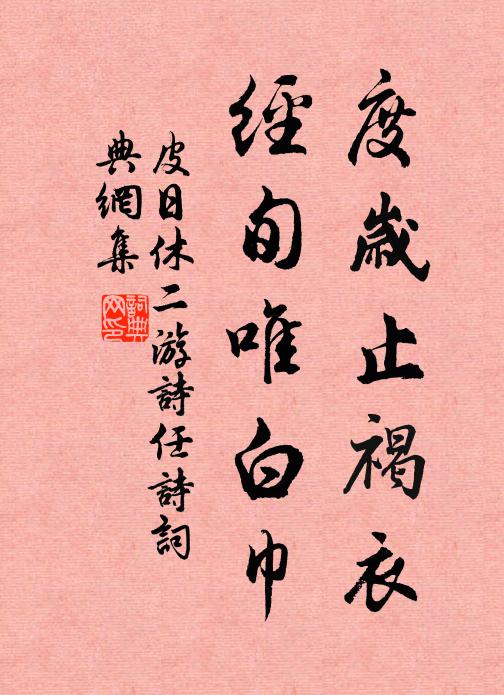 度歲止褐衣
經旬唯白巾
皮日休二游詩任詩詞
典網集
詞典
网印